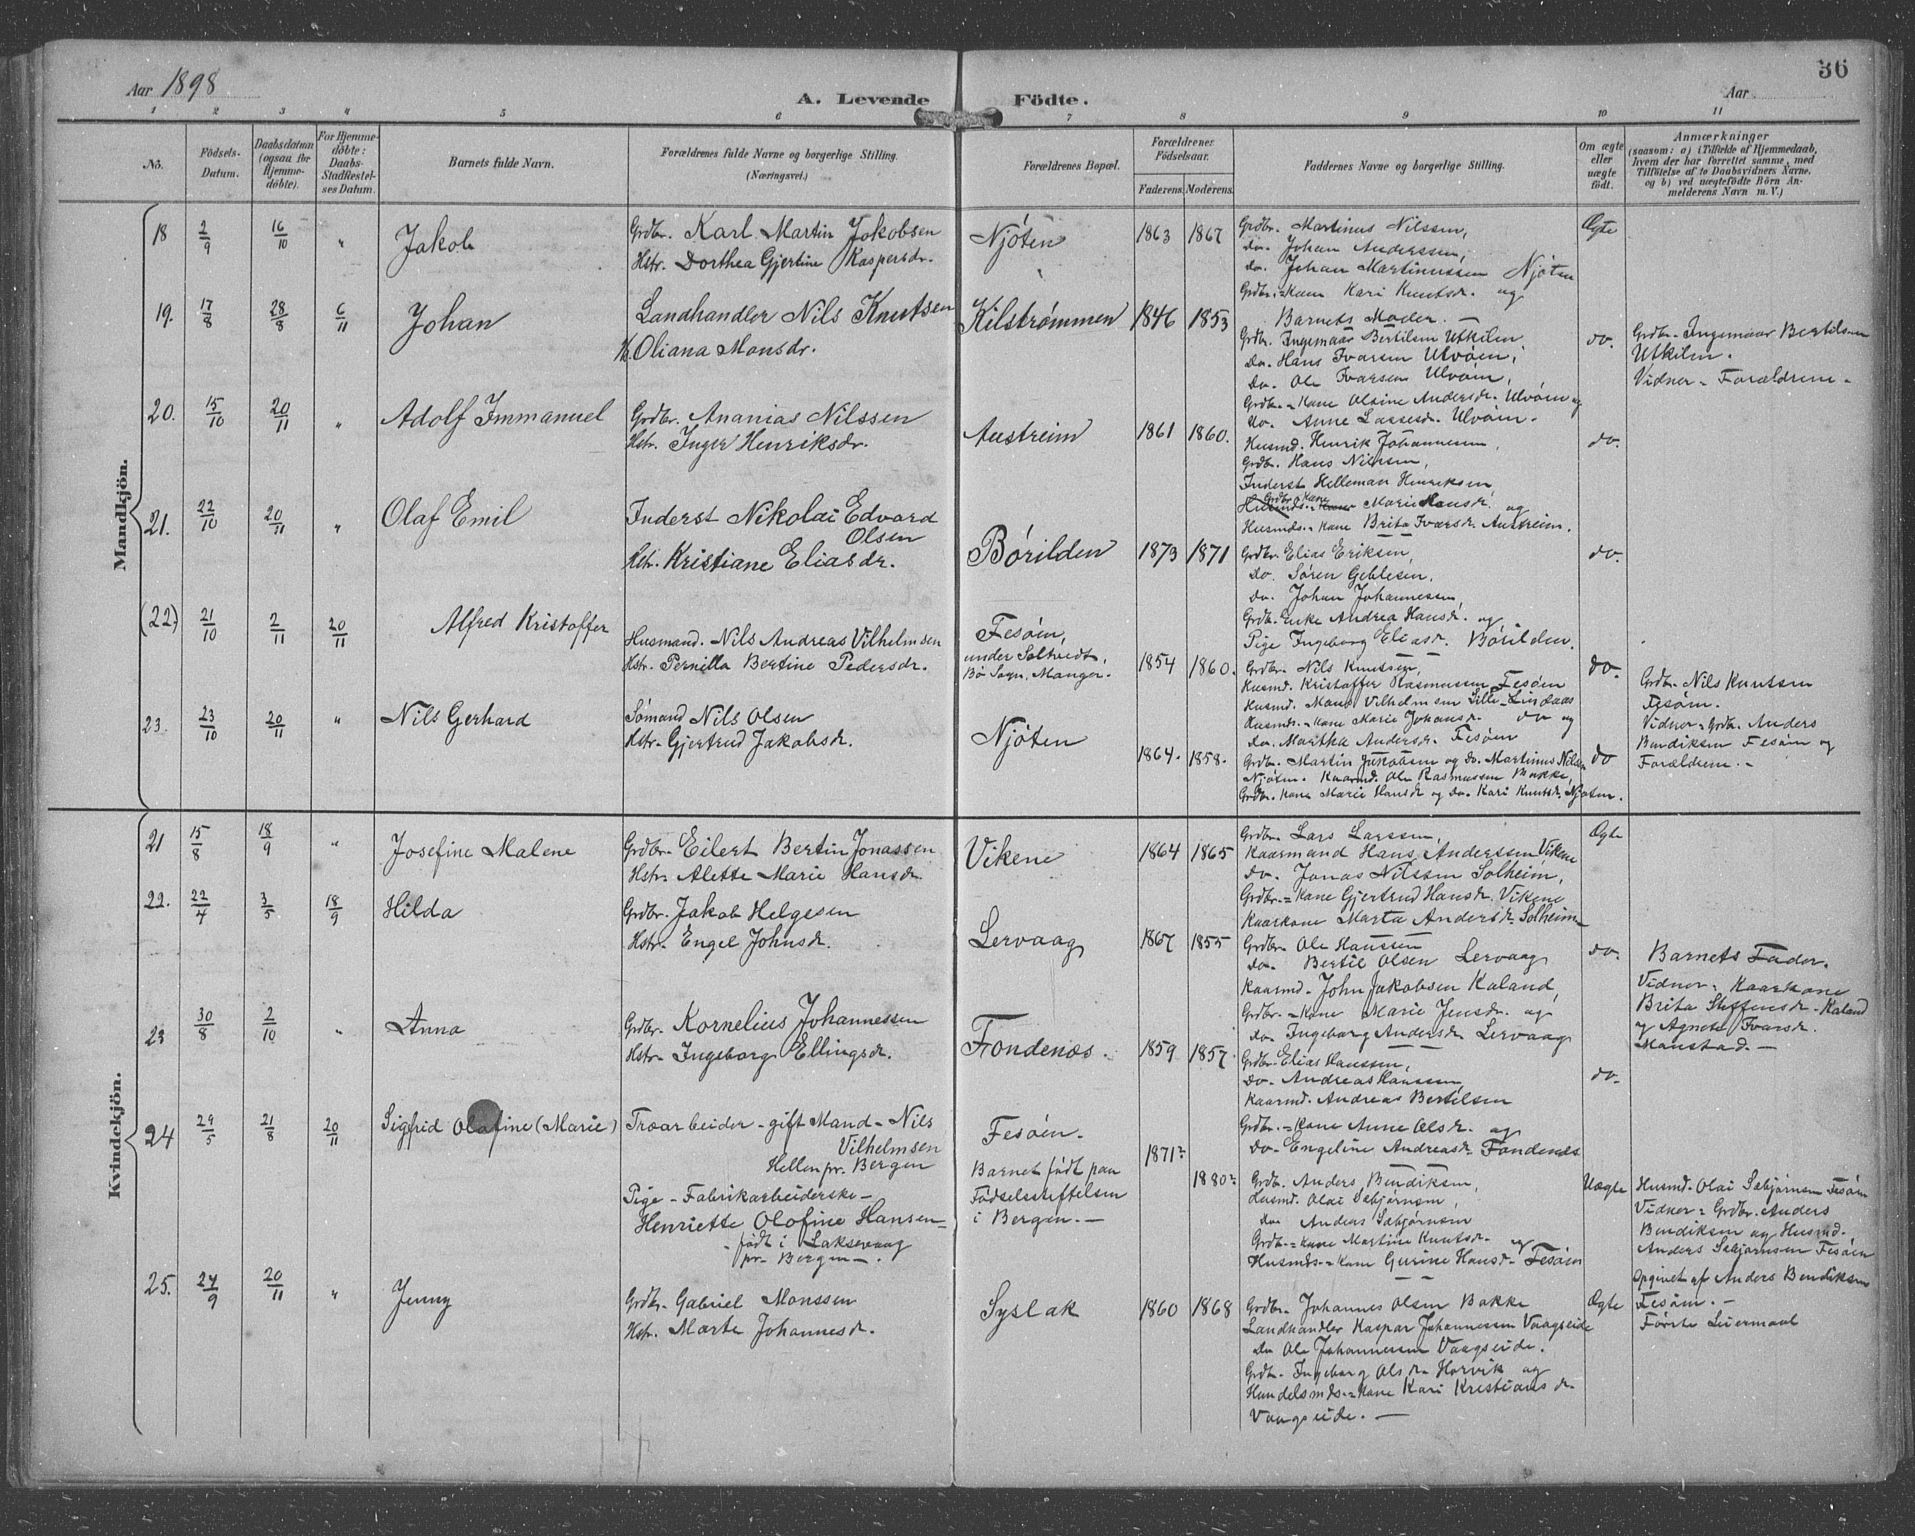 Aar 1898
A. Levende Födte.
36
Aar
1 2 3 4 5 6 7 8 9 10 11
No.
Födsels-Datum.
Daabsdatum (ogsaa for Hjemmedöbte).
For Hjemmedöbte: Daabs-Stadfestelses Datum.
Barnets fulde Navn.
Forældrenes fulde Navne og borgerlige Stilling. (Næringsvei.)
Forældrenes Bopæl.
Forældrenes Födselsaar.
Faderens. Moderens.
Faddernes Navne og borgerlige Stilling.
Om ægte eller uægte födt.
Anmærkninger
(saasom: a) i Tilfælde af Hjemmedaab, hvem der har forrettet samme, med Tilföielse af to Daabsvidners Navne, og b) ved uægtefödte Börn Anmelderens Navn m. V.)
Mandkjön.
18 2/9 16/10 " Jakob
Grdbr. Karl Martin Jakobsen
Hstr. Dorthea Gjertine Kaspersdr.
Njöten 1863 1867
Grdbr. Martinus Nilssen,
do. Johan Anderssen,
do. Johan Martinussen Njöten
Grdbr.=Kone Kari Knutsdr. og
Barnets Moder. —
Ægte
19. 17/8 28/8 6/11 Johan
Landhandler Nils Knutsen
H. Oliana Monsdr.
Kilströmmen 1846 1853
Grdbr. Ingemaar Bertilsen Utkilen
do. Hans Ivarsen Ulvöen,
do. Ole Ivarsen Ulvöen,
Grdbr.=Kone Olsine Andersdr. Ulvöen og
do. Anne Lassesdr. Ulvöen.
do.
Grdbr. Ingemaar Bertilsen
Utkilen.
Vidner = Forældrene.
20. 15/10 20/11 " Adolf Immanuel
Grdbr. Ananias Nilssen
Hstr. Inger Henriksdr.
Austreim 1861 1860.
Husmd. Henrik Johannessen,
Grdbr. Hans Nilssen,
Inderst Helleman Henriksen
Grdbr. Kone Marie Hansdr. og
Husmds.=Kone Brita Ivarsdr. Austreim.
do.
21. 22/10 20/11 " Olaf Emil
Inderst Nikolai Edvard
Olsen
Hstr. Kristiane Eliasdr.
Börilden 1873 1871
Grdbr. Elias Eriksen,
do. Sören Geblesen,
do. Johan Johannessen,
Grdbr. Enke Andrea Hansdr. og
Pige Ingeborg Eliasdr. Börilden.
do.
(22) 21/10 2/11 20/11 Alfred Kristoffer
Husmand. Nils Andreas Vilhelmsen
Hstr. Pernilla Bertine Pedersdr.
Fesöen,
under Soltvedt,
Bö Sogn, Manger. 1854 1860.
Grdbr. Nils Knutsen,
Husmd. Kristoffer Rasmussen Fesöen
Husmd. Mons Vilhelmsen Lille-Lindaas
Husmds.=Kone Marie Johansdr. do og
do. Martha Andersdr. Fesöen
do.
Grdbr. Nils Knutsen
Fesöen.
Vidner = Grdbr. Anders
Bendiksen Fesöen og
Forældrene. —
23. 23/10 20/11 " Nils Gerhard
Sömand Nils Olsen
Hstr. Gjertrud Jakobsdr.
Njöten 1864. 1858.
Grdbr. Martin Jakobsen og do. Martinus Nilssen
Njöten. Kaarmd. Ole Rasmussen Bakke,
Grdbr. Kone Marie Hansdr og do. Kari Knutsdr. Njöten.
do
Kvindekjön.
21 15/8 18/9 " Josefine Malene
Grdbr. Eilert Bertin Jonassen
Hstr. Alette Marie Hansdr.
Vikene 1864 1865
Grdbr. Lars Larssen,
Kaarmand Hans Anderssen Vikene
do. Jonas Nilssen Solheim,
Grdbr.=Kone Gjertrud Hansdr. Vikene
Kaarkone Marta Andersdr. Solheim
Ægte
22. 22/4 3/5 18/9 Hilda
Grdbr. Jakob Helgesen
Hstr. Engel Johnsdr.
Lervaag 1867 1855
Grdbr. Ole Hanssen
do. Bertil Olsen Lervaag
Kaarmd. John Jakobsen Kaland,
Grdbr.=Kone Marie Jensdr. og
do. Ingeborg Andersdr. Lervaag
do.
Barnets Fader.
Vidner = Kaarkone
Brita Steffensdr. Kaland
og Agnete Ivarsdr.
Monstad. —
23 30/8 2/10 " Anna
Grdbr. Kornelius Johannessen
Hstr. Ingeborg Ellingsdr.
Fondenæs. 1859 1857.
Grdbr. Elias Hanssen,
do. Andreas Hanssen,
Kaarmd. Andreas Bertilsen
Grdbr.=Kone Anne Olsdr. og
do. Engeline Andreasdr. Fondenæs
do.
24 29/5 21/8 20/11 Sigfrid Olafine (Marie)
Træarbeider - gift Mand - Nils
Vilhelmsen
Hellen pr. Bergen
Pige - Fabrikarbeiderske -
Henriette Olofine Hansen
- född i Laksevaag
pr. Bergen —.
Fesöen.
Barnet födt paa
Födselsstiftelsen
i Bergen. —
1871? 1880?
Grdbr. Anders Bendiksen,
Husmd. Olai Sæbjörnsen,
do Andreas Sæbjörnsen
Grdbr.=Kone Martine Knutsdr. og
Husmds.=Kone Gurine Hansdr. Fesöen
Uægte
Husmd. Olai Sæbjörnsen Fesöen
Vidner = Grdbr. Anders
Bendiksen og Husmd.
Anders Sæbjörnsen Fesöen
Opgivet af Anders Bendiksen
Fesöen. —
Förste Leiermaal
25. 24/9 20/11 " Jenny
Grdbr. Gabriel Monssen
Hstr. Marte Johannesdr.
Syslak 1860 1868
Grdbr. Johannes Olsen Bakke
Landhandler Kaspar Johannessen Vaagseide
do Ole Johannessen Vaagseide.
Grdbr. Ingeborg Olsdr. Horvik og
Handelsmds.=Kone Kari Kristiansdr.
Vaagseide. —
Ægte